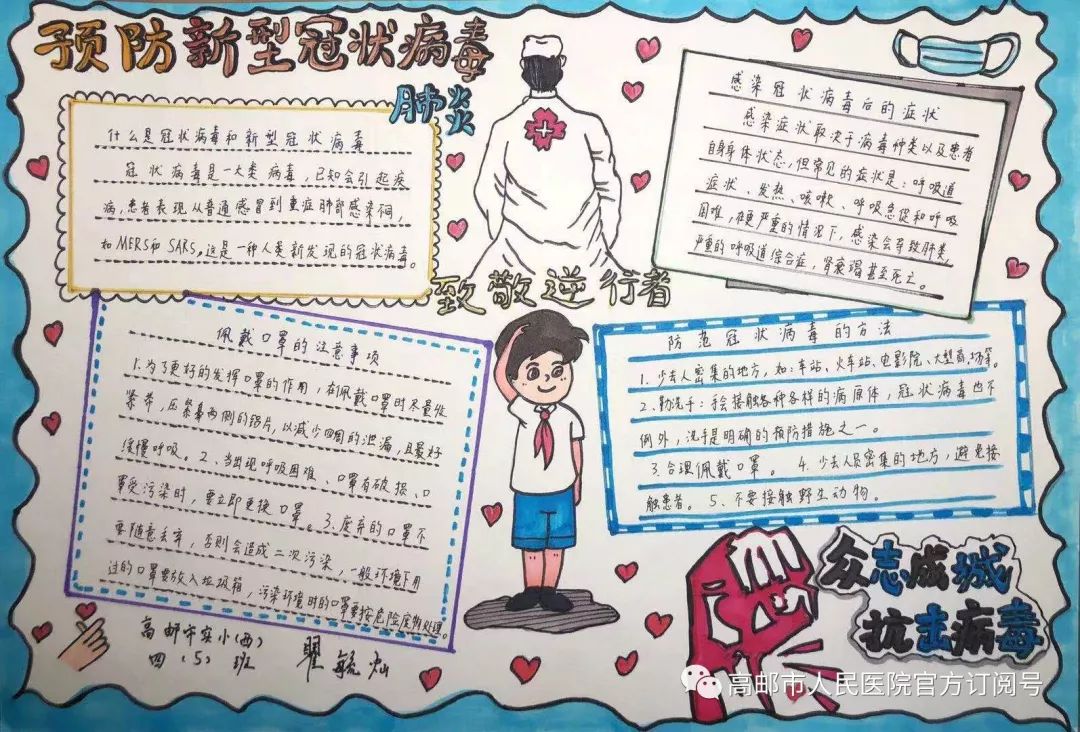 预防新型冠状病毒
肺炎
什么是冠状病毒和新型冠状病毒
冠状病毒是一大类病毒,已知会引起疾
病,患者表现从普通感冒到重症肺部感染不同,
如MERS和SARS。这是一种人类新发现的冠状病毒。
感染冠状病毒后的症状
感染症状取决于病毒种类以及患者
自身身体状态,但常见的症状是:呼吸道
症状、发热、咳嗽、呼吸急促和呼吸
困难,在更严重的情况下,感染会导致肺炎,
严重的呼吸道综合症,肾衰竭甚至死亡。
致敬逆行者
佩戴口罩的注意事项
1.为了更好的发挥口罩的作用,在佩戴口罩时尽量收
紧带,压紧鼻两侧的铝片,以减少四周的泄漏,且最好
缓慢呼吸。2、当出现呼吸困难、口罩有破损、口
罩受污染时,要立即更换口罩。3.废弃的口罩不
要随意丢弃,否则会造成二次污染,一般环境下用
过的口罩要放入垃圾箱,污染环境时的口罩要按危险废物处理。
防范冠状病毒的方法
1.少去人密集的地方,如:车站、火车站、电影院、大型商场等。
2.勤洗手:手会接触各种各样的病原体,冠状病毒也不
例外,洗手是明确的预防措施之一。
3.合理佩戴口罩。 4.少去人员密集的地方,避免接
触患者。5、不要接触野生动物。
高邮市实小(西)
四(5)班 翟毓灿
众志成城
抗击病毒
高邮市人民医院官方订阅号